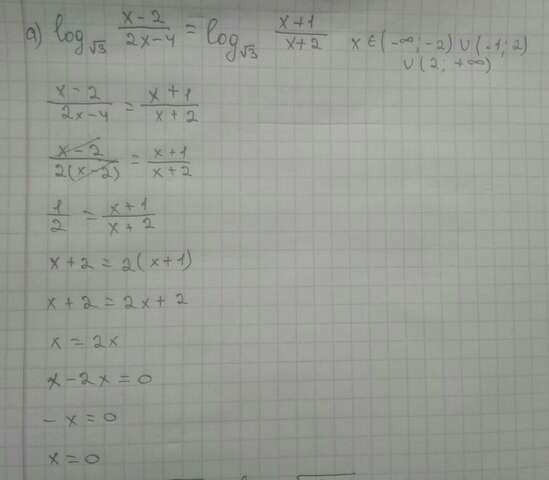 a) log_√3 (x-2)/(2x-4) = log_√3 (x+1)/(x+2) x ∈ (-∞; -2) ∪ (-1; 2)
∪ (2; +∞)
(x-2)/(2x-4) = (x+1)/(x+2)
(x-2)/(2(x-2)) = (x+1)/(x+2)
1/2 = (x+1)/(x+2)
x+2 = 2(x+1)
x+2 = 2x+2
x = 2x
x-2x = 0
-x = 0
x = 0